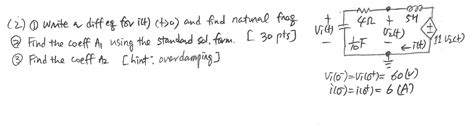 (2) ① Write a diff eq for i(t) (t>0) and find natural freq
② Find the coeff A₁ using the standard sol. form. [30 pts]
③ Find the coeff A₂ [hint: overdamping]
4Ω 5H
+ Vi(t) - + V₂(t) -
1/10 F ← i(t)
Vi(0⁻)=Vi(0⁺)= 60(V)
i(0⁻)=i(0⁺)= 6(A)